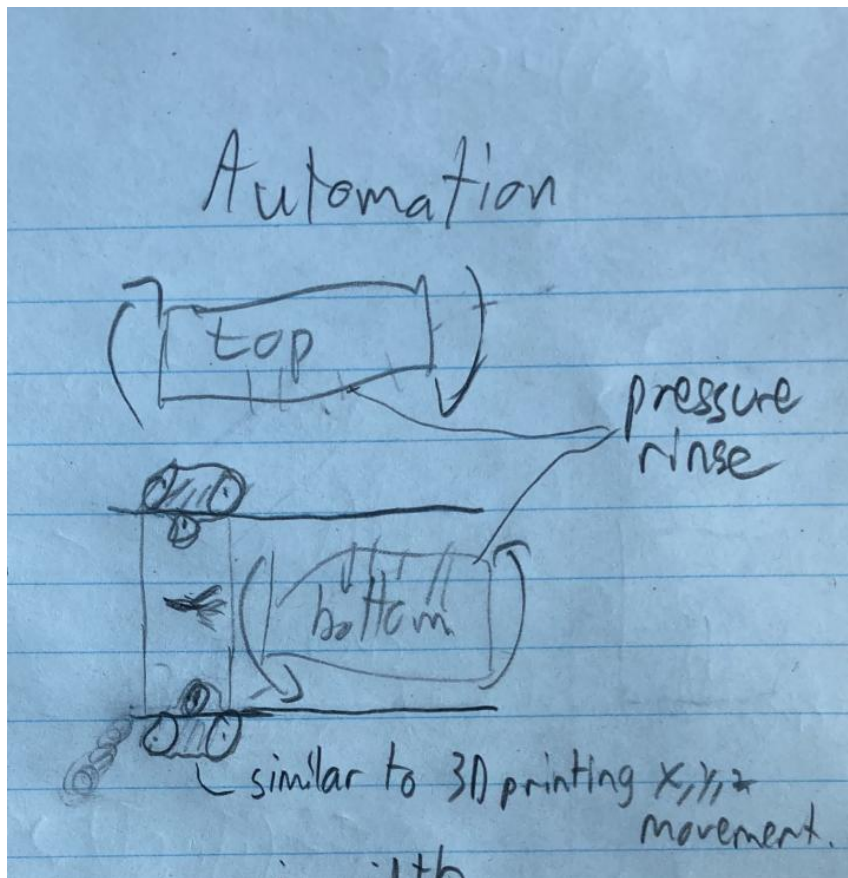 Automation
top
pressure
rinse
bottom
similar to 3D printing x,y,z
movement.